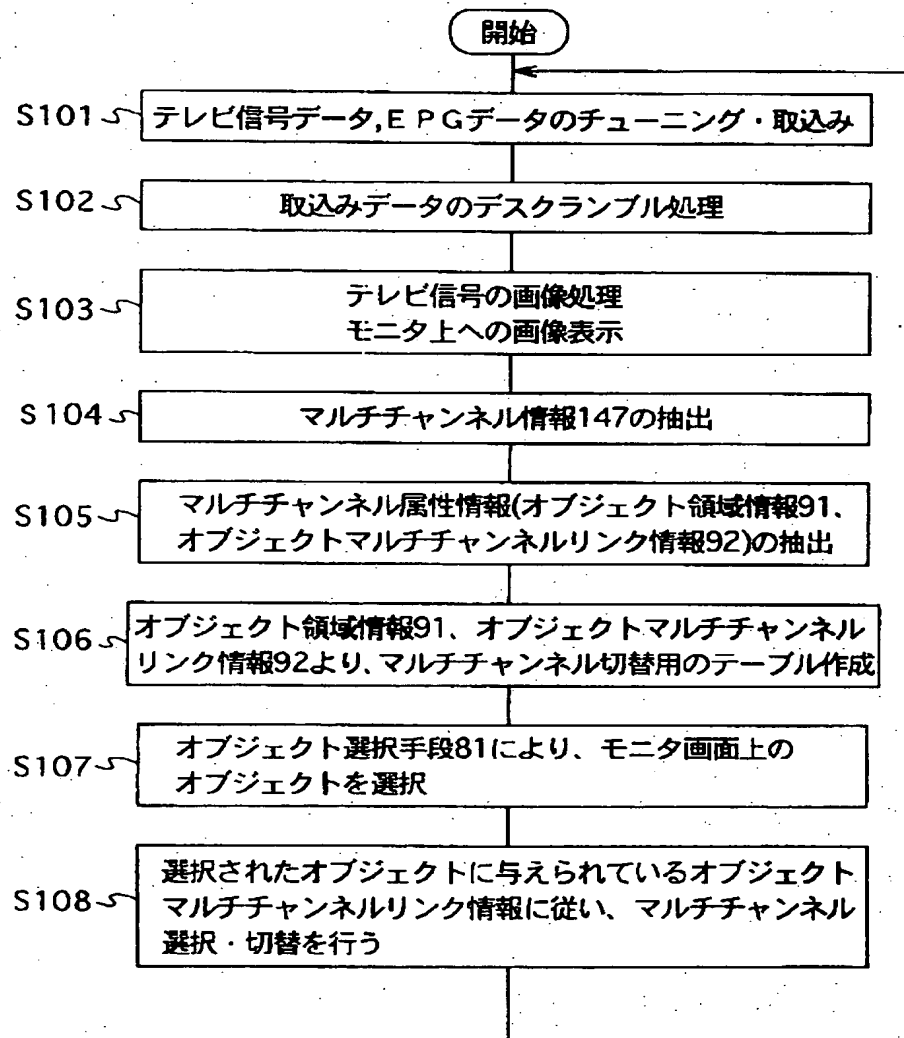 開始
S101 テレビ信号データ,EPGデータのチューニング・取込み
S102 取込みデータのデスクランブル処理
S103 テレビ信号の画像処理
モニタ上への画像表示
S104 マルチチャンネル情報147の抽出
S105 マルチチャンネル属性情報(オブジェクト領域情報91、
オブジェクトマルチチャンネルリンク情報92)の抽出
S106 オブジェクト領域情報91、オブジェクトマルチチャンネル
リンク情報92より、マルチチャンネル切替用のテーブル作成
S107 オブジェクト選択手段81により、モニタ画面上の
オブジェクトを選択
S108 選択されたオブジェクトに与えられているオブジェクト
マルチチャンネルリンク情報に従い、マルチチャンネル
選択・切替を行う